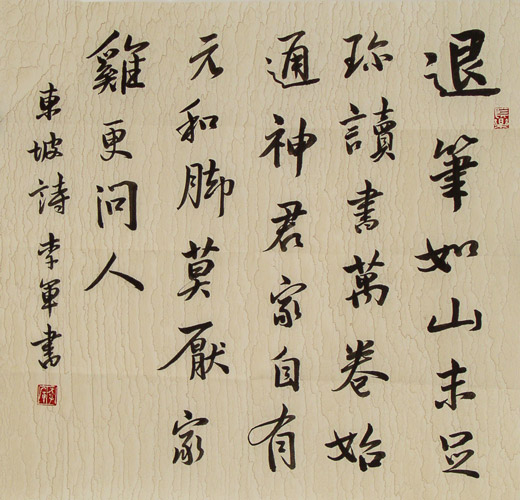 退筆如山未足
珎讀書萬卷始
通神君家自有
元和脚莫厭家
雞更问人
東坡詩李軍書